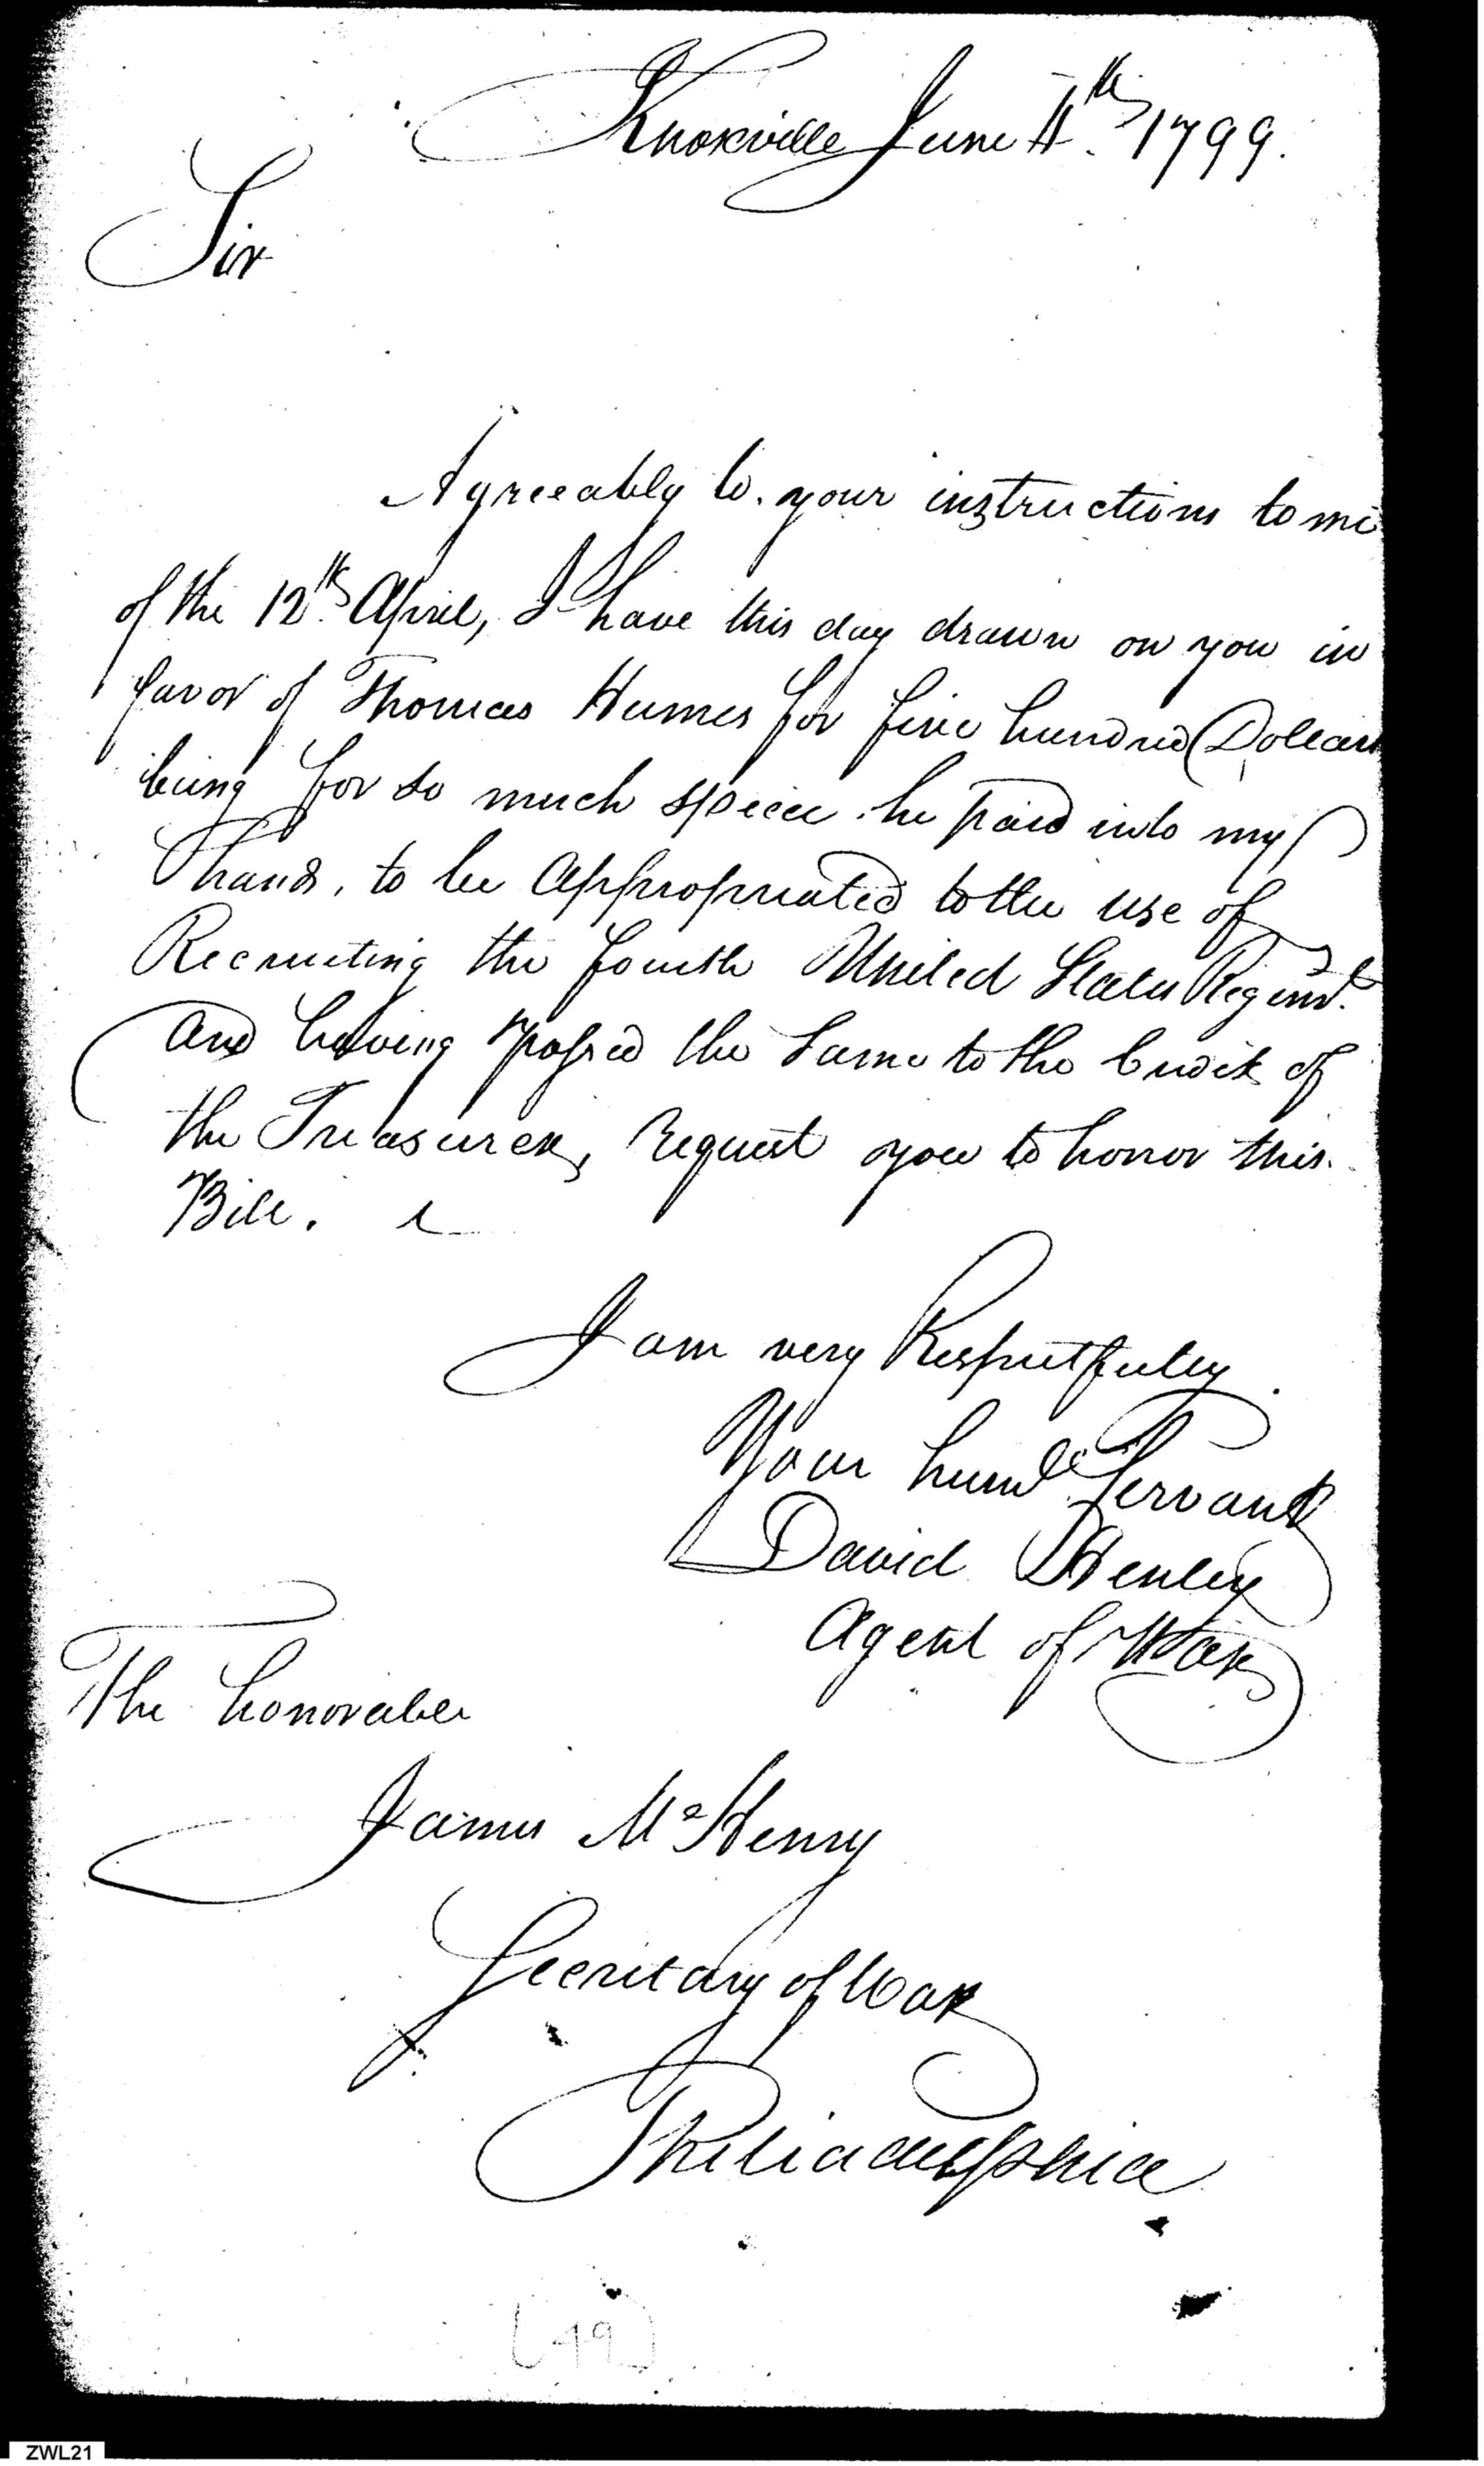 Knoxville June 4th 1799.
Sir
Agreeably to your instructions to me
of the 12th April, I have this day drawn on you in
favor of Thomas Humes for five hundred Dollars
being for so much specie he paid into my
hands, to be appropriated to the use of
Recruiting the fourth United States Regimt.
and having passed the same to the Credit of
the Treasurer, request you to honor this
Bill.
I am very Respectfully
Your humle Servant
David Henley
Agent of War
The honorable
James McHenry
Secretary of War
Philiadelphia
(49)
ZWL21